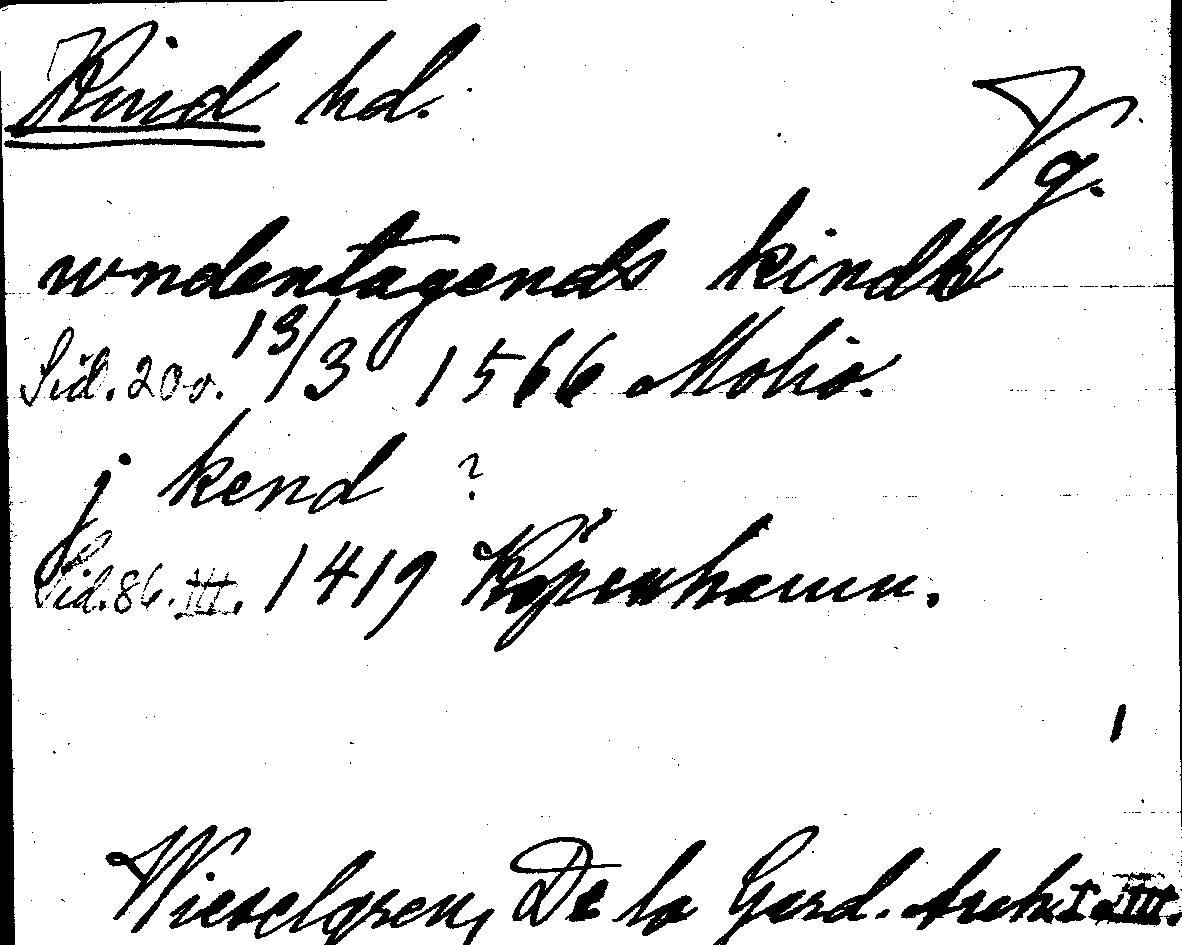 Kind hd.
Vg.
wndentagends kindh
Sid. 200. 13/3 1566 Moho.
j kend ?
Sid. 86. III. 1419 Köpenhamn.
1
Wieselgren, De la Gard. Arch. I o. III.